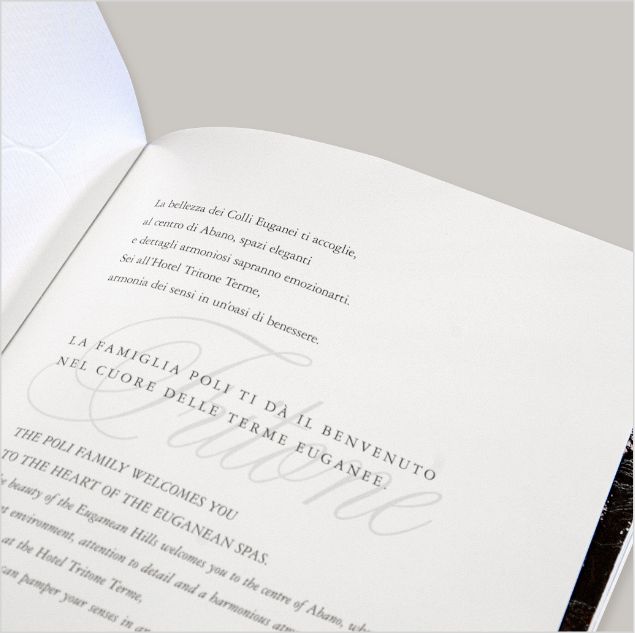 La bellezza dei Colli Euganei ti accoglie,
al centro di Abano, spazi eleganti
e dettagli armoniosi sapranno emozionarti.
Sei all'Hotel Tritone Terme,
armonia dei sensi in un'oasi di benessere.
Tritone
LA FAMIGLIA POLI TI DÀ IL BENVENUTO
NEL CUORE DELLE TERME EUGANEE.
THE POLI FAMILY WELCOMES YOU
TO THE HEART OF THE EUGANEAN SPAS.
beauty of the Euganean Hills welcomes you to the centre of Abano,
environment, attention to detail and a harmonious
at the Hotel Tritone Terme,
can pamper your senses in